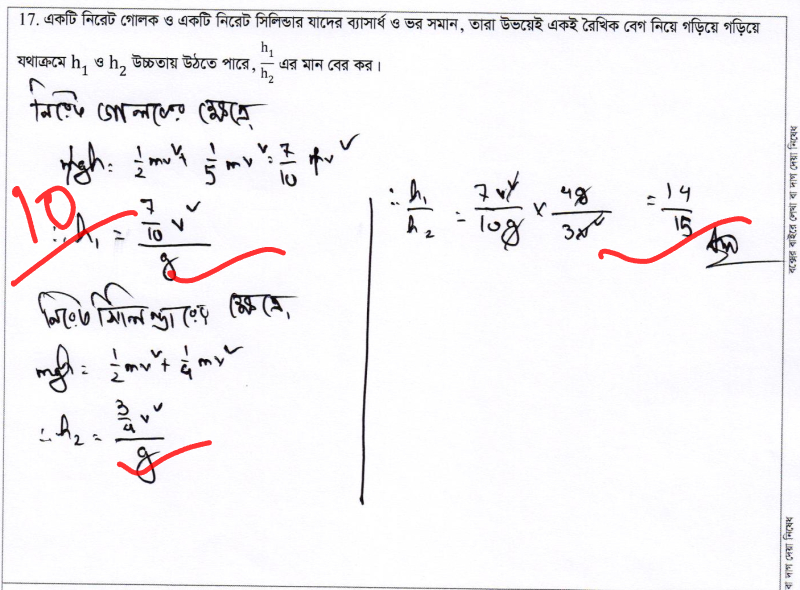 17. একটি নিরেট গোলক ও একটি নিরেট সিলিন্ডার যাদের ব্যাসার্ধ ও ভর সমান, তারা উভয়েই একই রৈখিক বেগ নিয়ে গড়িয়ে গড়িয়ে
যথাক্রমে h₁ ও h₂ উচ্চতায় উঠতে পারে, h₁/h₂ এর মান বের কর।
নিরেট গোলকের ক্ষেত্রে,
mgh = 1/2 mv² + 1/5 mv² = 7/10 mv²
10
∴ h₁ = (7/10 v²)/g
নিরেট সিলিন্ডারের ক্ষেত্রে,
mgh = 1/2 mv² + 1/4 mv²
∴ h₂ = (3/4 v²)/g
∴ h₁/h₂ = 7v²/10g × 4g/3v² = 14/15
বক্সের বাইরে লেখা বা দাগ দেয়া নিষেধ
বা দাগ দেয়া নিষেধ